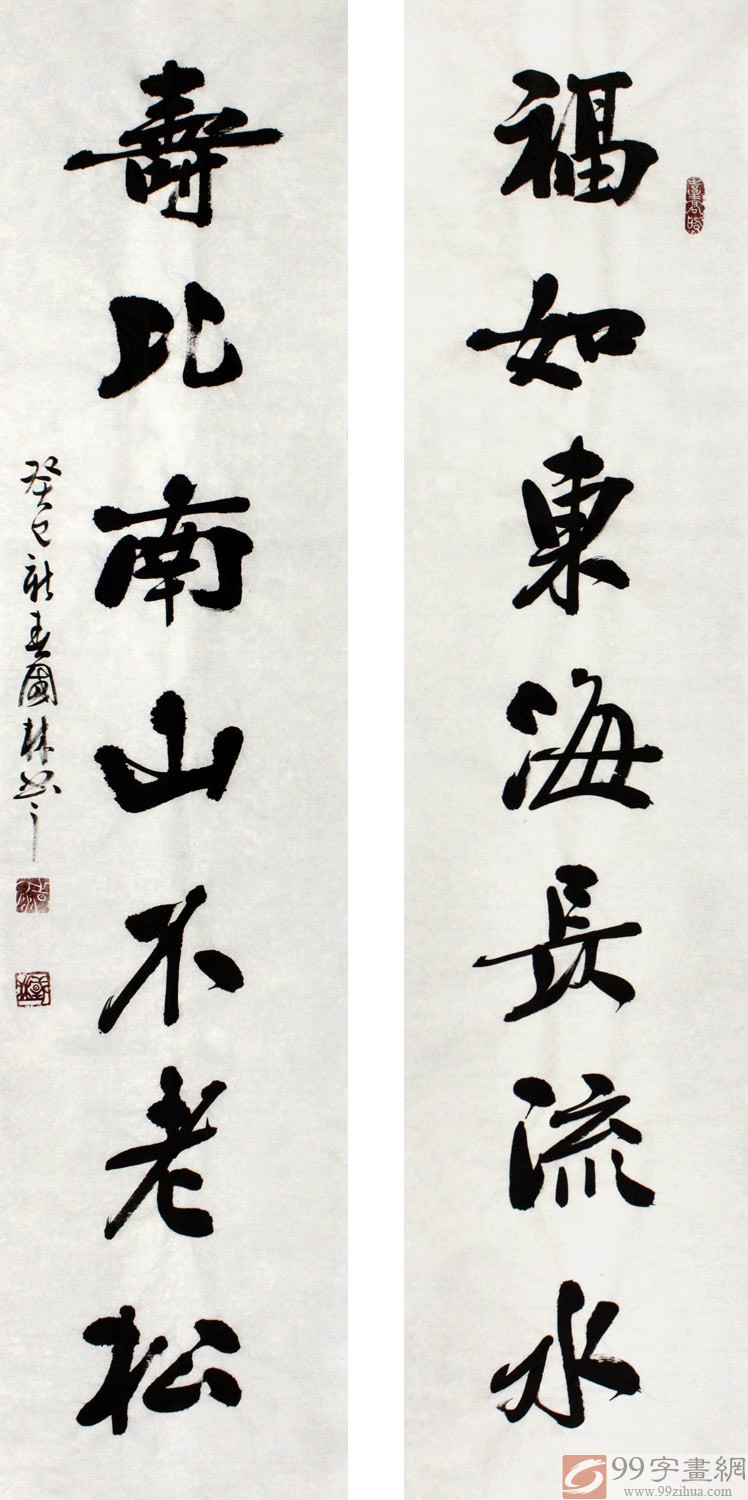 福如東海長流水
壽比南山不老松
癸巳新春國林書
99字畫網
www.99zihua.com